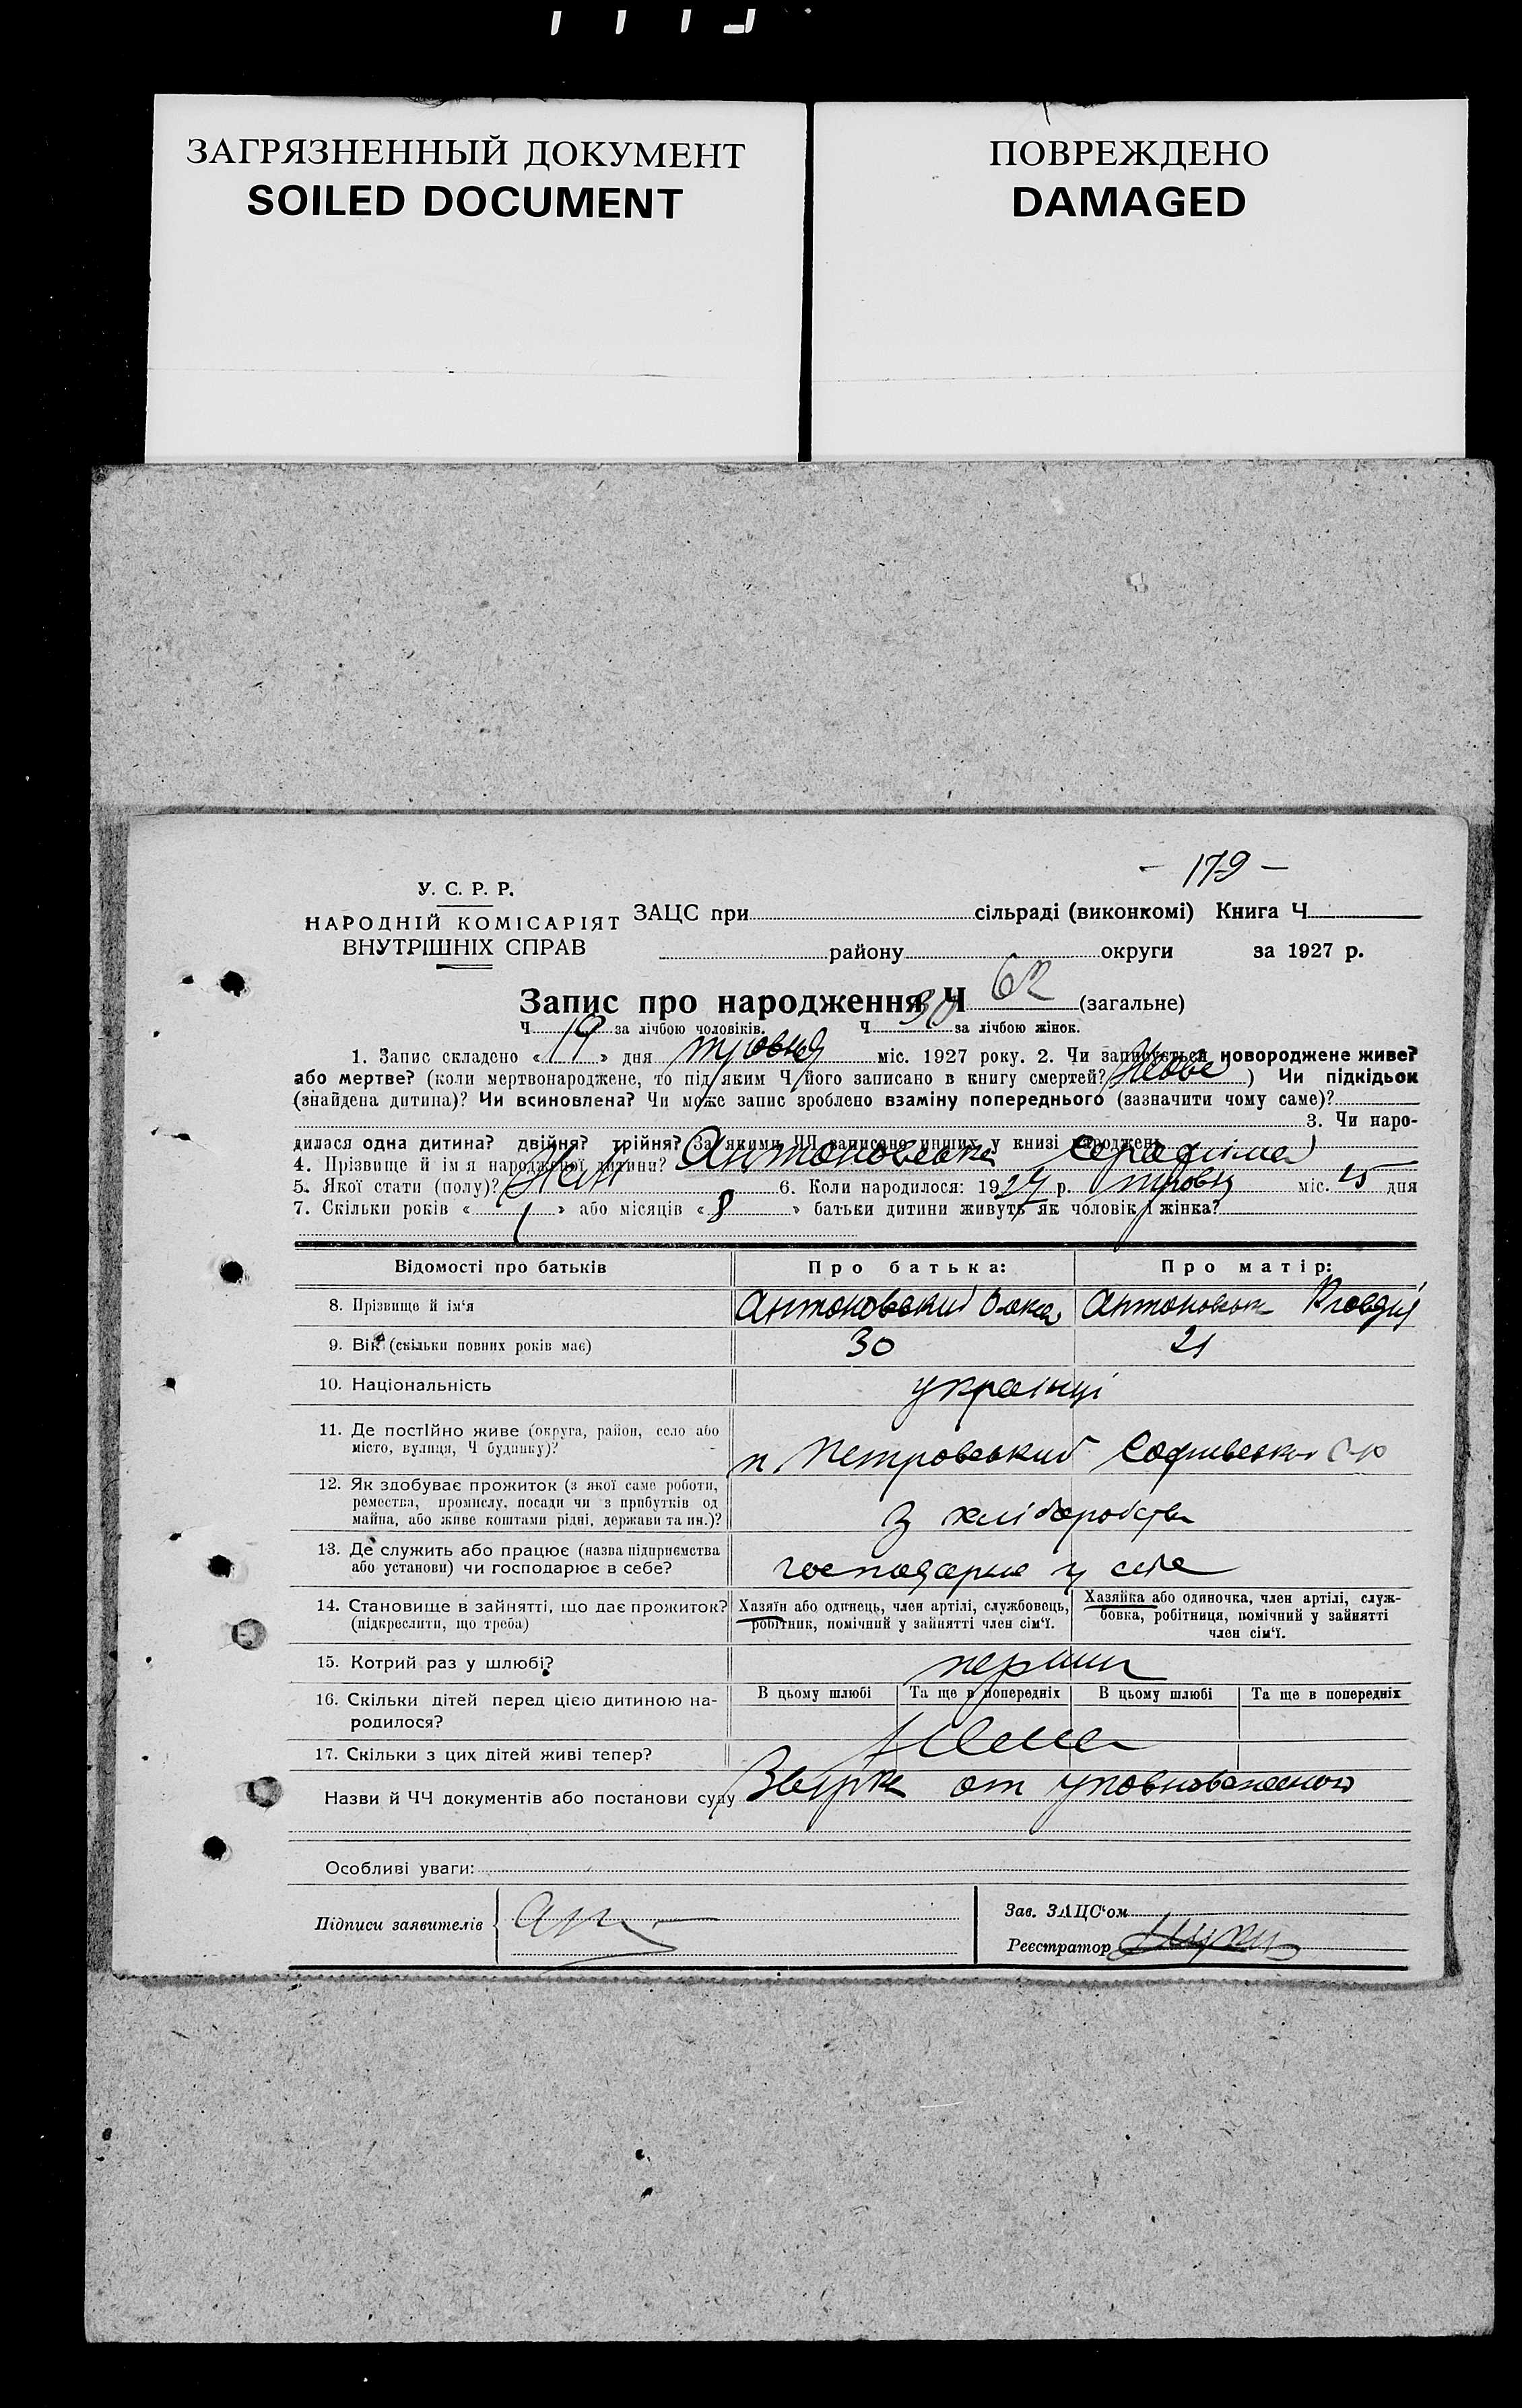 ЗАГРЯЗНЕННЫЙ ДОКУМЕНТ
SOILED DOCUMENT
ПОВРЕЖДЕНО
DAMAGED
- 179 -
У. С. Р. Р.
НАРОДНІЙ КОМІСАРІЯТ
ВНУТРІШНІХ СПРАВ
ЗАЦС при сільраді (виконкомі) Книга Ч
району округи за 1927 р.
Запис про народження Ч 62 (загальне)
Ч за лічбою чоловіків. Ч 30 за лічбою жінок.
1. Запис складено « 19 » дня травня міс. 1927 року. 2. Чи записується новороджене живе?
або мертве? (коли мертвонароджене, то під яким Ч його записано в книгу смертей? Живе ) Чи підкідьок
(знайдена дитина)? Чи всиновлена? Чи може запис зроблено взаміну попереднього (зазначити чому саме)?
3. Чи наро-
дилася одна дитина? двійня? трійня? За якими ЧЧ записано инших у книзі народжень
4. Прізвище й ім'я народженої дитини? Антоновська Серафима
5. Якої стати (полу)? Жін 6. Коли народилося: 1927 р. травня міс. 15 дня
7. Скільки років « 1 » або місяців « 8 » батьки дитини живуть як чоловік і жінка?
Відомості про батьків
Про батька:
Про матір:
8. Прізвище й ім'я
Антоновський
Антоновська Клавдія
9. Вік (скільки повних років має)
30
21
10. Національність
українці
11. Де постійно живе (округа, район, село або
місто, вулиця, Ч будинку)?
п Петровський Софиевської
12. Як здобуває прожиток (з якої саме роботи,
ремества, промислу, посади чи з прибутків од
майна, або живе коштами рідні, держави та ин.)?
З хліборобства
13. Де служить або працює (назва підприємства
або установи) чи господарює в себе?
господарює у себе
14. Становище в зайнятті, що дає прожиток?
(підкреслити, що треба)
Хазяїн або одинець, член артілі, службовець,
робітник, помічний у зайнятті член сім'ї.
Хазяйка або одиночка, член артілі, служ-
бовка, робітниця, помічний у зайнятті
член сім'ї.
15. Котрий раз у шлюбі?
перший
16. Скільки дітей перед цією дитиною на-
родилося?
В цьому шлюбі
Та ще в попередніх
В цьому шлюбі
Та ще в попередніх
Нема
17. Скільки з цих дітей живі тепер?
Назви й ЧЧ документів або постанови суду от уповноваженого
Особливі уваги:
Підписи заявителів
Зав. ЗАЦС'ом
Реєстратор